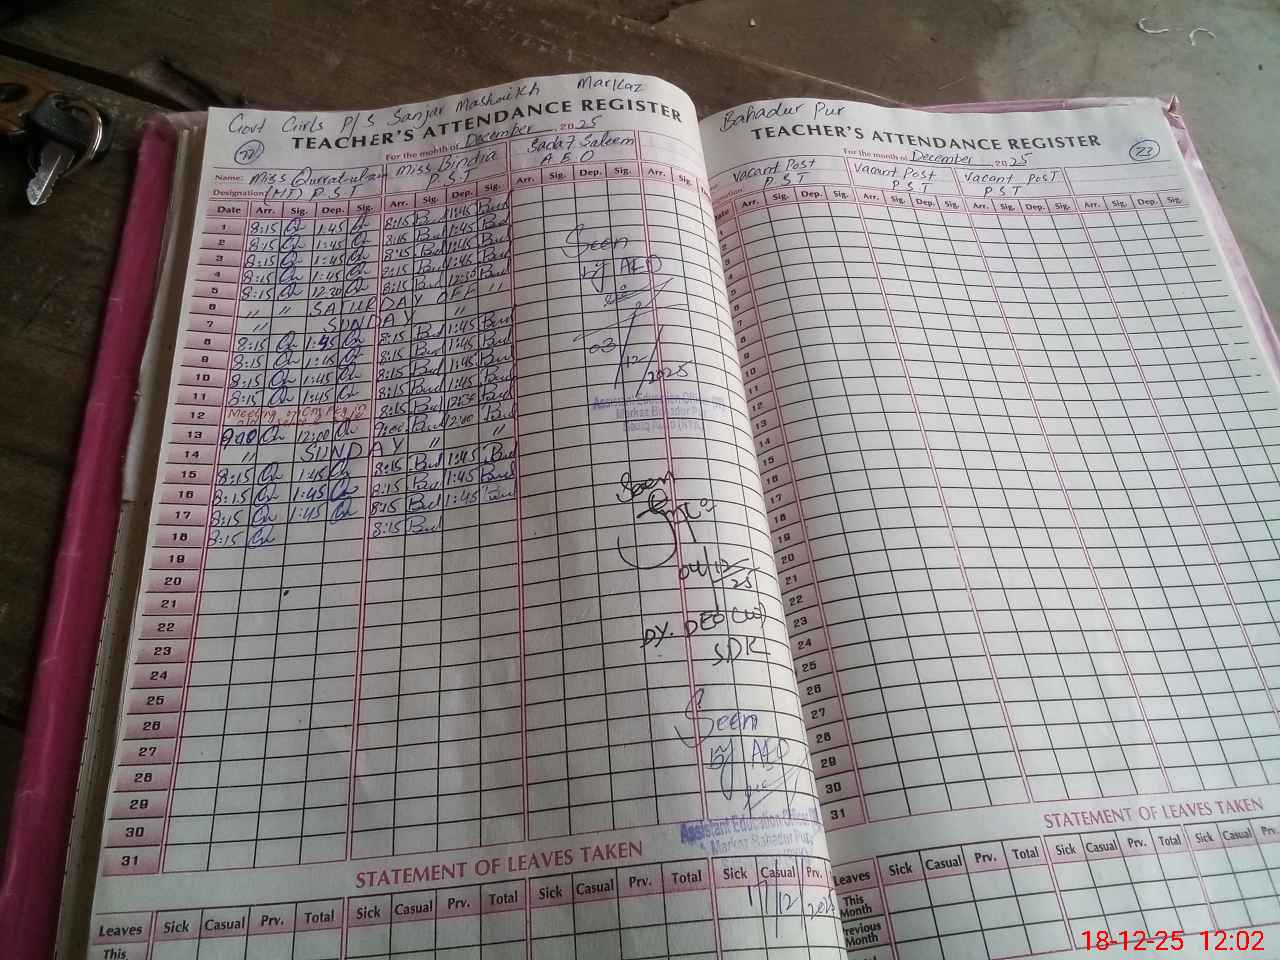 Govt Girls P/S Sanjar Mashaikh Markaz
TEACHER'S ATTENDANCE REGISTER
22
For the month of December, 2025
Name: Miss Qurratulain Miss Bindia Sadaf Saleem
Designation (HT) P.S.T P.S.T A.E.O
Date Arr. Sig. Dep. Sig. Arr. Sig. Dep. Sig. Arr. Sig. Dep. Sig. Arr. Sig.
1 8:15 1:45 8:15 1:45
2 8:15 1:45 8:15 1:45
3 8:15 1:45 8:15 1:45
4 8:15 1:45 8:15 1:45
5 8:15 12:30 8:15 12:30
6 " " SATURDAY OFF "
7 " SUNDAY "
8 8:15 1:45 8:15 1:45
9 8:15 1:45 8:15 1:45
10 8:15 1:45 8:15 1:45
11 8:15 1:45 8:15 1:45
12 Meeting 8:15
13 9:00 12:00 9:00 12:00
14 " SUNDAY " "
15 8:15 1:45 8:15 1:45
16 8:15 1:45 8:15 1:45
17 8:15 1:45 8:15 1:45
18 8:15 8:15
19
20
21
22
23
24
25
26
27
28
29
30
31
Seen
by AEO
03/12/2025
Assistant Education Officer
Markaz Bahadur Pur
Seen
04/12/25
DY. DEO (W)
SDK
Seen
by AEO
Assistant Education Officer
Markaz Bahadur Pur
17/12/
STATEMENT OF LEAVES TAKEN
Leaves Sick Casual Prv. Total Sick Casual Prv. Total Sick Casual Prv. Total Sick Casual Prv.
This
Bahadur Pur
TEACHER'S ATTENDANCE REGISTER
23
For the month of December 2025
Vacant Post Vacant Post Vacant Post
P.S.T P.S.T P.S.T
Date Arr. Sig. Dep. Sig. Arr. Sig. Dep. Sig. Arr. Sig. Dep. Sig. Arr. Sig. Dep. Sig.
1
2
3
4
5
6
7
8
9
10
11
12
13
14
15
16
17
18
19
20
21
22
23
24
25
26
27
28
29
30
31
STATEMENT OF LEAVES TAKEN
Leaves Sick Casual Prv. Total Sick Casual Prv. Total Sick Casual Prv. Total
This Month
Previous Month
18-12-25 12:02